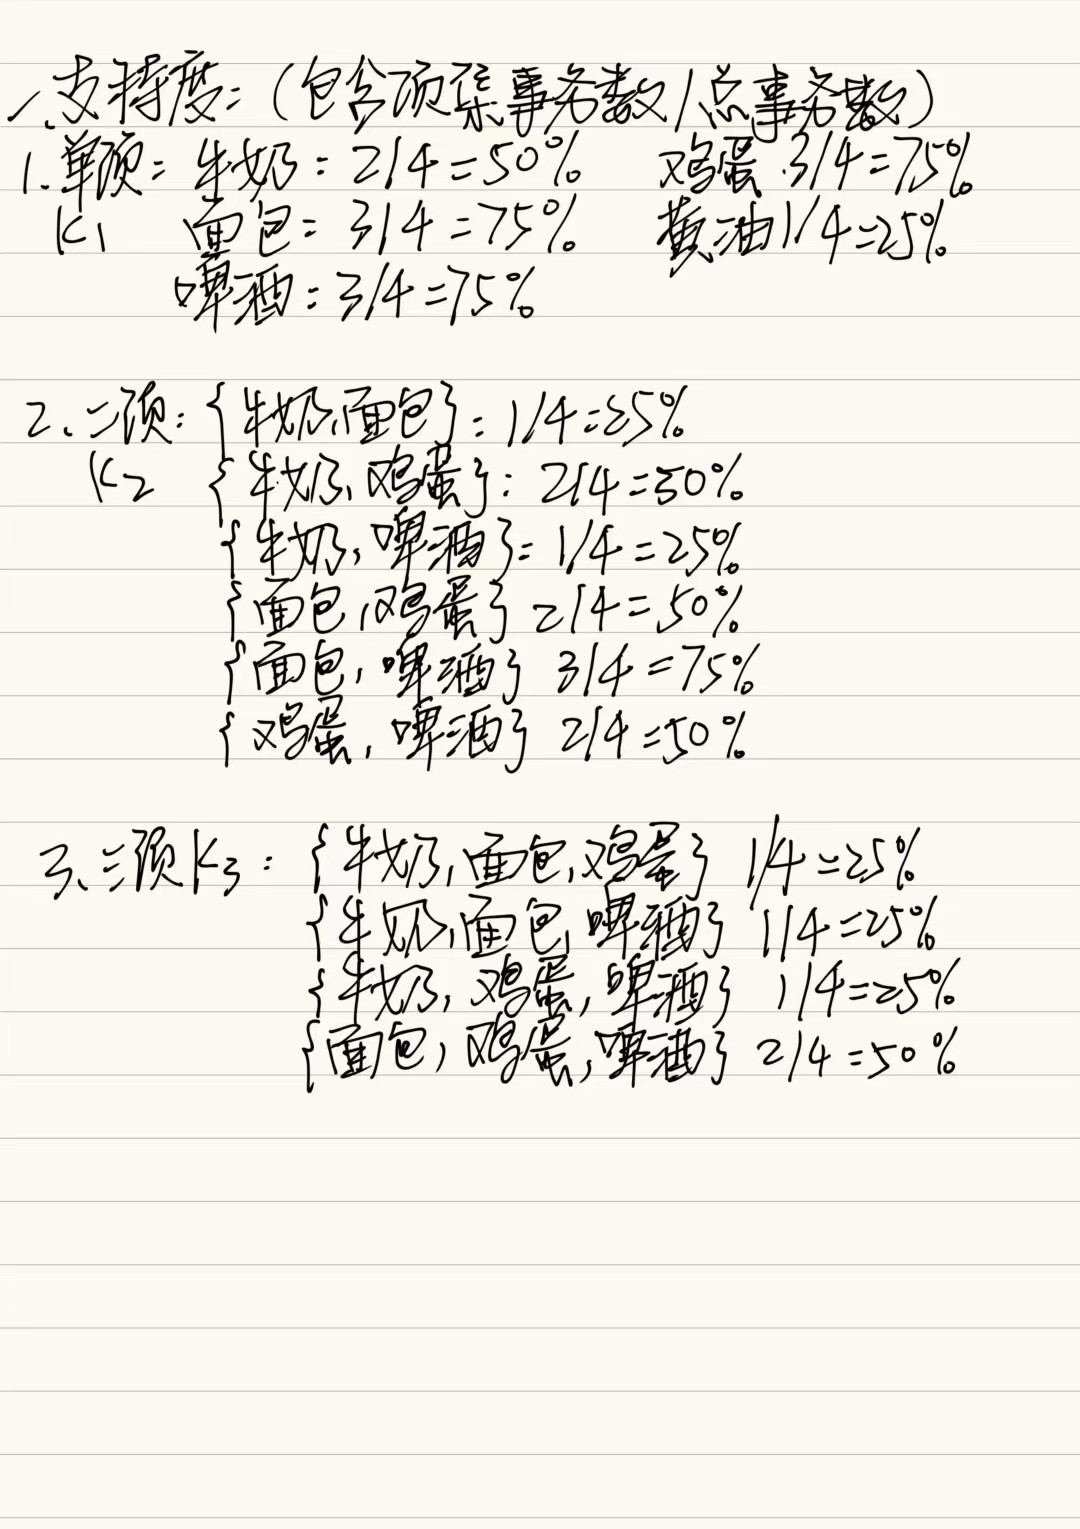 一、支持度：（包含项集事务数/总事务数）
1.单项：牛奶：2/4=50% 鸡蛋 3/4=75%
K1 面包：3/4=75% 黄油 1/4=25%
啤酒：3/4=75%
2、二项：{牛奶,面包}：1/4=25%
K2 {牛奶,鸡蛋}：2/4=50%
{牛奶,啤酒}：1/4=25%
{面包,鸡蛋} 2/4=50%
{面包,啤酒} 3/4=75%
{鸡蛋,啤酒} 2/4=50%
3、三项K3：{牛奶,面包,鸡蛋} 1/4=25%
{牛奶,面包,啤酒} 1/4=25%
{牛奶,鸡蛋,啤酒} 1/4=25%
{面包,鸡蛋,啤酒} 2/4=50%